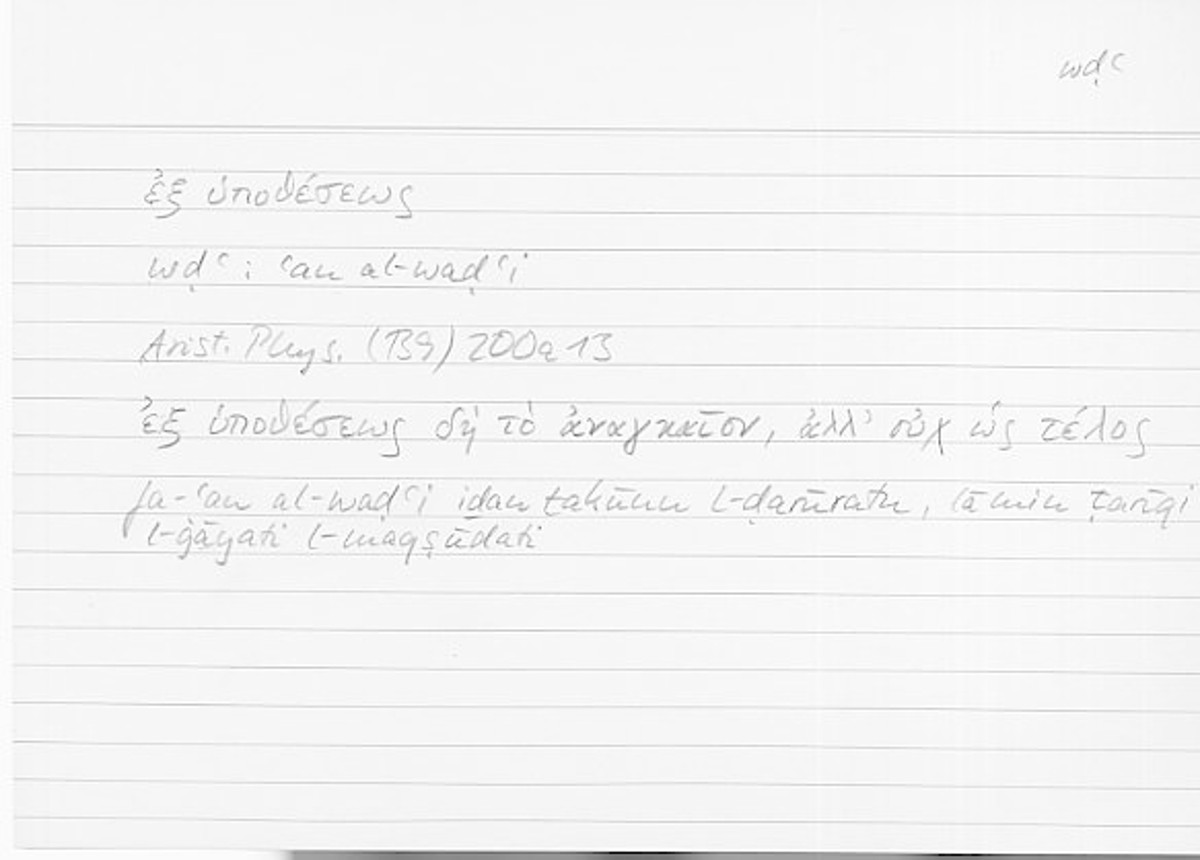 wḍʿ
ἐξ ὑποθέσεως
wḍʿ : ʿan al-waḍʿi
Arist. Phys. (B9) 200a13
ἐξ ὑποθέσεως δὴ τὸ ἀναγκαῖον, ἀλλ’ οὐχ ὡς τέλος
fa-ʿan al-waḍʿi iḏan takūnu l-ḍarūratu, lā min ṭarīqi
l-ġāyati l-maqṣūdati